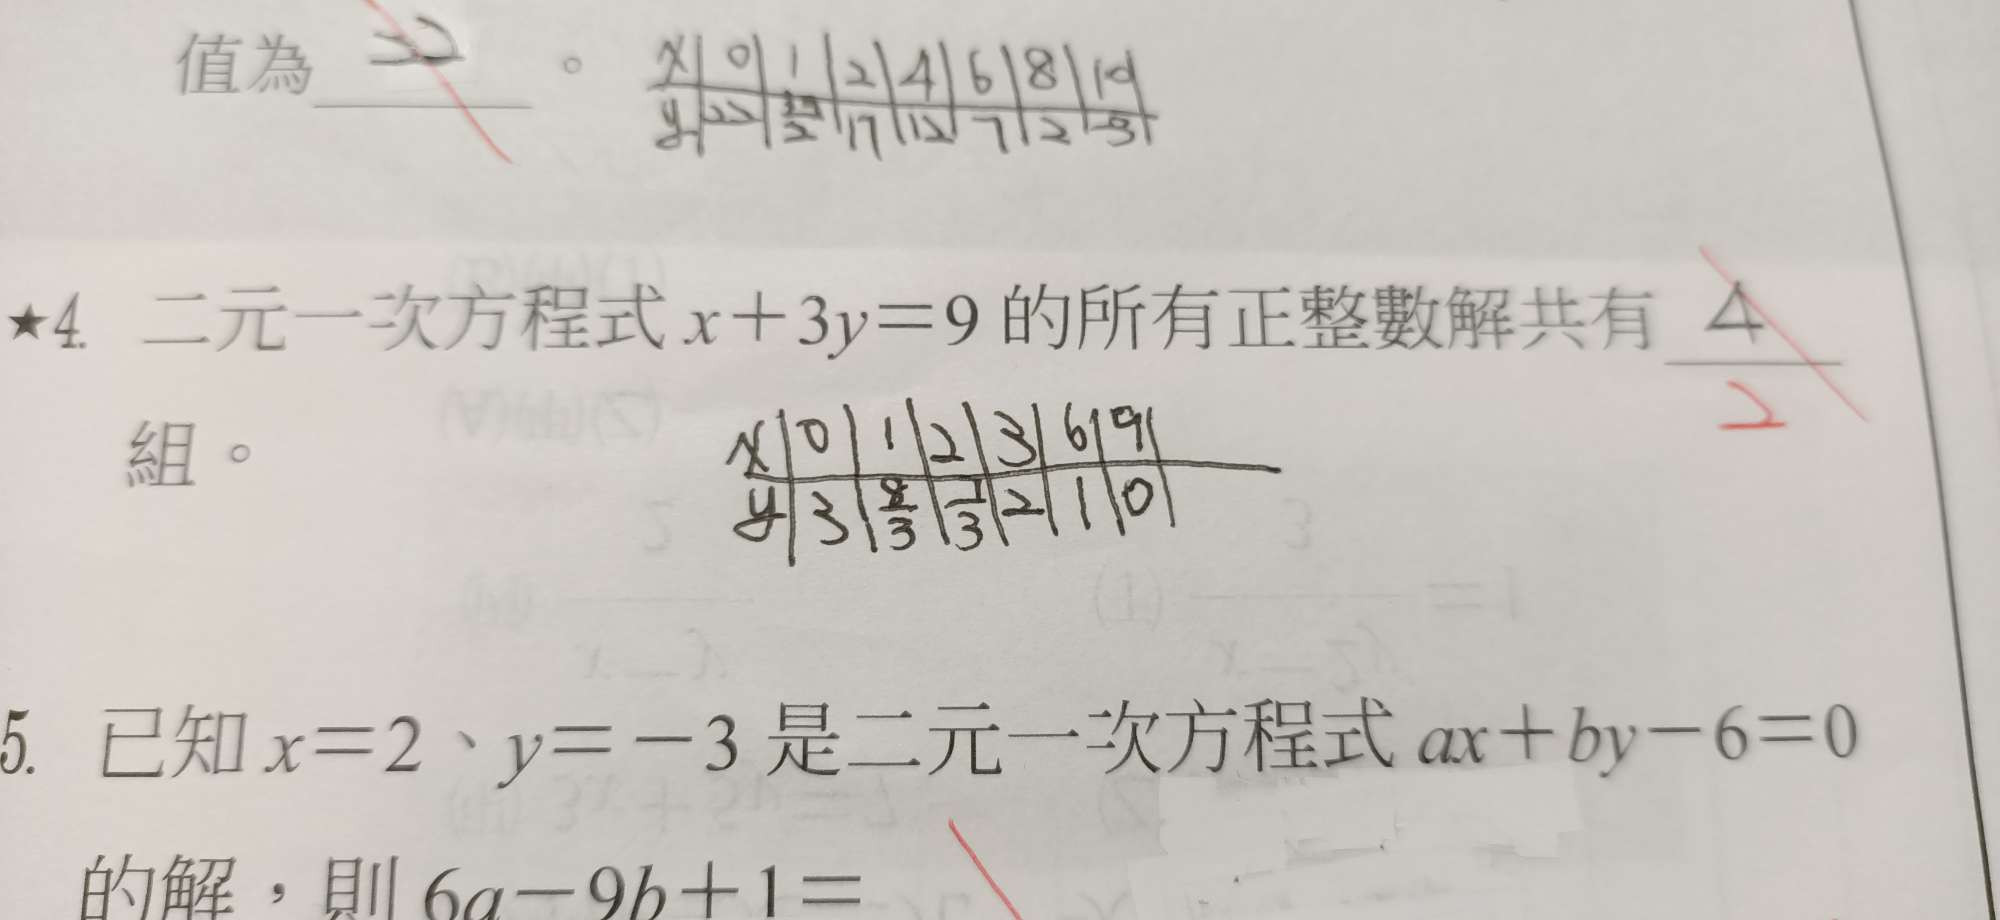 值為 22 。
x 0 1 2 4 6 8 10
y 22 17 12 7 2 -3
★4. 二元一次方程式 x+3y=9 的所有正整數解共有 4
2
組。
x 0 1 2 3 6 9
y 3 8/3 7/3 2 1 0
5. 已知 x=2、y=-3 是二元一次方程式 ax+by-6=0
的解，則 6a-9b+1=